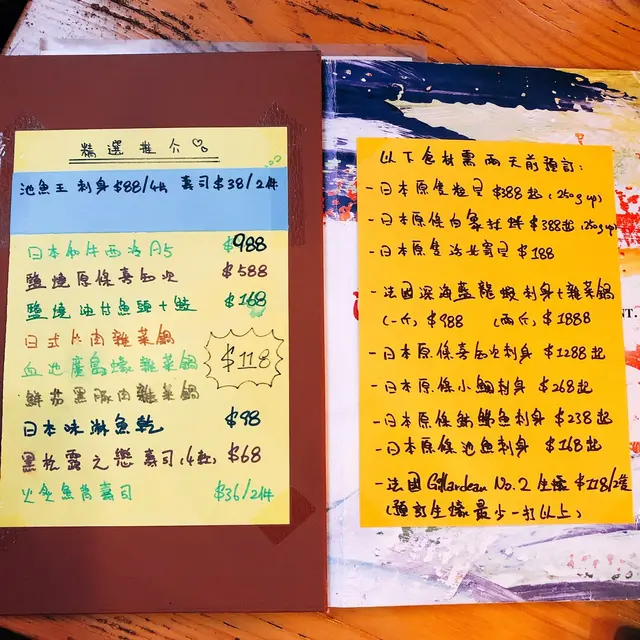 精選推介♡
池魚王 刺身 $88/4片 壽司 $38/2件
日本和牛西冷A5 $988
鹽燒原條喜知次 $588
鹽燒油甘魚頭+鮫 $168
日式片肉雜菜鍋
血池廣島蠔雜菜鍋 $118
鮮茄黑豚肉雜菜鍋
日本味淋魚乾 $98
黑松露之戀壽司(4粒) $68
火炙魚蓉壽司 $36/2件
以下食材需兩天前預訂:
- 日本原隻粒貝 $388起 (250g up)
- 日本原條白象拔蚌 $388起 (250g up)
- 日本原隻活北寄貝 $188
- 法國深海藍龍蝦刺身+雜菜鍋
(一斤) $988 (兩斤) $1888
- 日本原條喜知次刺身 $1288起
- 日本原條小鯛刺身 $268起
- 日本原條魚刺身 $238起
- 日本原條池魚刺身 $168起
- 法國Gillardeau No.2 生蠔 $118/2隻
(預訂生蠔最少一打以上)
NT.